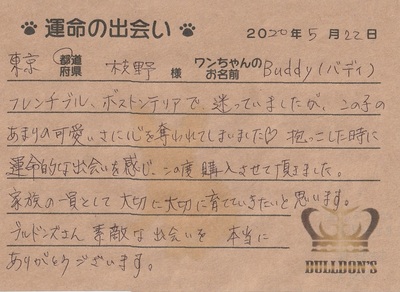 運命の出会い 2020年5月22日
東京 都道府県 枝野 様 ワンちゃんのお名前 Buddy(バディ)
フレンチブル、ボストンテリアで、迷っていましたが、この子の
あまりの可愛いさに心を奪われてしまいました♡ 抱っこした時に
運命的な出会いを感じ、この度購入させて頂きました。
家族の一員として大切に大切に育てていきたいと思います。
ブルドンズさん 素敵な出会いを 本当に
ありがとうございます。
BULLDON'S